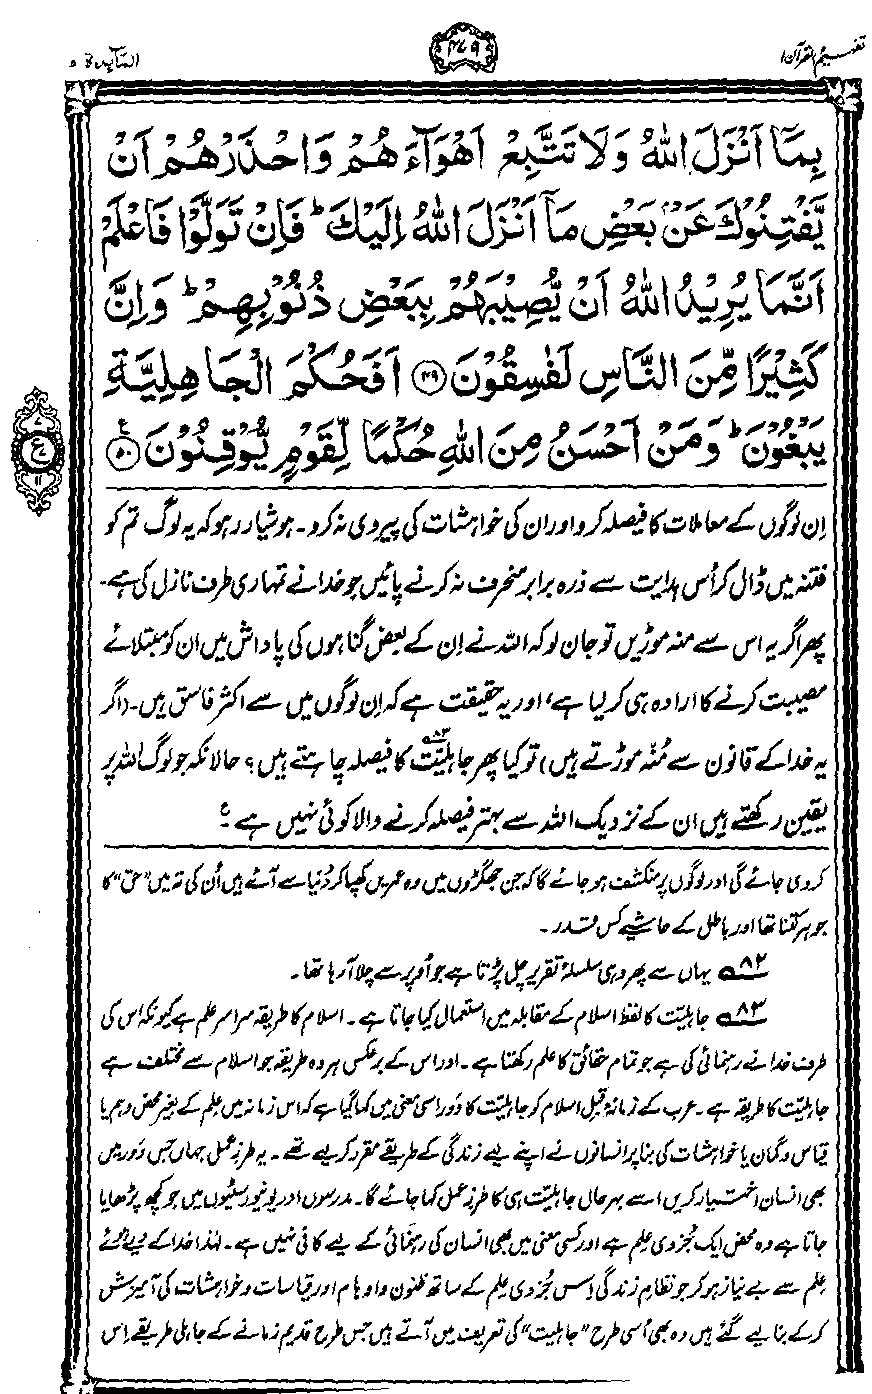 تفہیم القرآن ۱
۴۷۹
المآئدۃ ۵
بِمَآ اَنْزَلَ اللّٰهُ وَلَا تَتَّبِعْ اَهْوَآءَهُمْ وَاحْذَرْهُمْ اَنْ
يَّفْتِنُوْكَ عَنْۢ بَعْضِ مَآ اَنْزَلَ اللّٰهُ اِلَيْكَ ؕ فَاِنْ تَوَلَّوْا فَاعْلَمْ
اَنَّمَا يُرِيْدُ اللّٰهُ اَنْ يُّصِيْبَهُمْ بِبَعْضِ ذُنُوْبِهِمْ ؕ وَاِنَّ
كَثِيْرًا مِّنَ النَّاسِ لَفٰسِقُوْنَ ۴۹ اَفَحُكْمَ الْجَاهِلِيَّةِ
يَبْغُوْنَ ؕ وَمَنْ اَحْسَنُ مِنَ اللّٰهِ حُكْمًا لِّقَوْمٍ يُّوْقِنُوْنَ ۵۰ ع
۷
ع
۱۱
اِن لوگوں کے معاملات کا فیصلہ کرو اور ان کی خواہشات کی پیروی نہ کرو۔ ہوشیار رہو کہ یہ لوگ تم کو
فتنہ میں ڈال کر اُس ہدایت سے ذرہ برابر منحرف نہ کرنے پائیں جو خدا نے تمہاری طرف نازل کی ہے۔
پھر اگر یہ اس سے منہ موڑیں تو جان لو کہ اللہ نے اِن کے بعض گناہوں کی پاداش میں ان کو مبتلائے
مصیبت کرنے کا ارادہ ہی کر لیا ہے، اور یہ حقیقت ہے کہ اِن لوگوں میں سے اکثر فاسق ہیں۔ (اگر
یہ خدا کے قانون سے مُنہ موڑتے ہیں) تو کیا پھر جاہلیّت۸۳ کا فیصلہ چاہتے ہیں؟ حالانکہ جو لوگ اللہ پر
یقین رکھتے ہیں ان کے نزدیک اللہ سے بہتر فیصلہ کرنے والا کوئی نہیں ہے۔ ع
کر دی جائے گی اور لوگوں پر منکشف ہو جائے گا کہ جن جھگڑوں میں وہ عمریں کھپا کر دُنیا سے آئے ہیں اُن کی تہ میں ”حق“ کا
جوہر کتنا تھا اور باطل کے حاشیے کس قدر۔
۸۲ یہاں سے پھر وہی سلسلۂ تقریر چل پڑتا ہے جو اُوپر سے چلا آ رہا تھا۔
۸۳ جاہلیّت کا لفظ اسلام کے مقابلہ میں استعمال کیا جاتا ہے۔ اسلام کا طریقہ سراسر علم ہے کیونکہ اس کی
طرف خدا نے رہنمائی کی ہے جو تمام حقائق کا علم رکھتا ہے۔ اور اس کے برعکس ہر وہ طریقہ جو اسلام سے مختلف ہے
جاہلیّت کا طریقہ ہے۔ عرب کے زمانۂ قبل اسلام کو جاہلیّت کا دَور اسی معنی میں کہا گیا ہے کہ اس زمانہ میں علم کے بغیر محض وہم یا
قیاس و گمان یا خواہشات کی بنا پر انسانوں نے اپنے لیے زندگی کے طریقے مقرر کر لیے تھے۔ یہ طرزِ عمل جہاں جس دَور میں
بھی انسان اختیار کریں اسے بہرحال جاہلیّت ہی کا طرزِ عمل کہا جائے گا۔ مدرسوں اور یونیورسٹیوں میں جو کچھ پڑھایا
جاتا ہے وہ محض ایک جُزوی علم ہے اور کسی معنی میں بھی انسان کی رہنمائی کے لیے کافی نہیں ہے۔ لہٰذا خدا کے دیے ہوئے
علم سے بے نیاز ہو کر جو نظامِ زندگی اِس جُزوی علم کے ساتھ ظنون و اوہام اور قیاسات و خواہشات کی آمیزش
کر کے بنا لیے گئے ہیں وہ بھی اُسی طرح ”جاہلیت“ کی تعریف میں آتے ہیں جس طرح قدیم زمانے کے جاہلی طریقے اِس